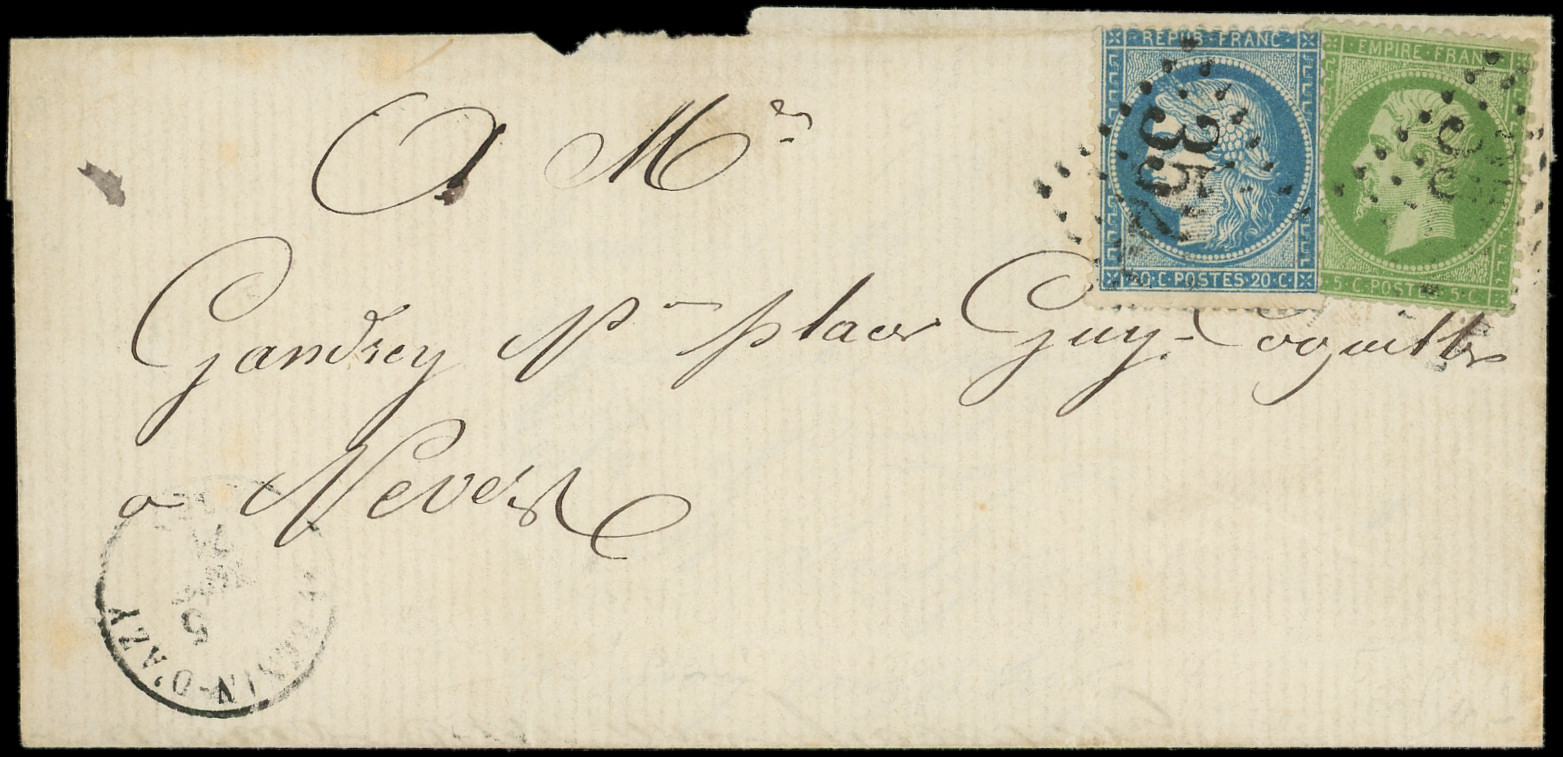 A Mr
Gandrey Nn place Guy-Coquille
a Nevers
REPUB·FRANC
20·C·POSTES·20·C
EMPIRE·FRANC
5·C·POSTES·5·C
5
BENIN-D'AZY